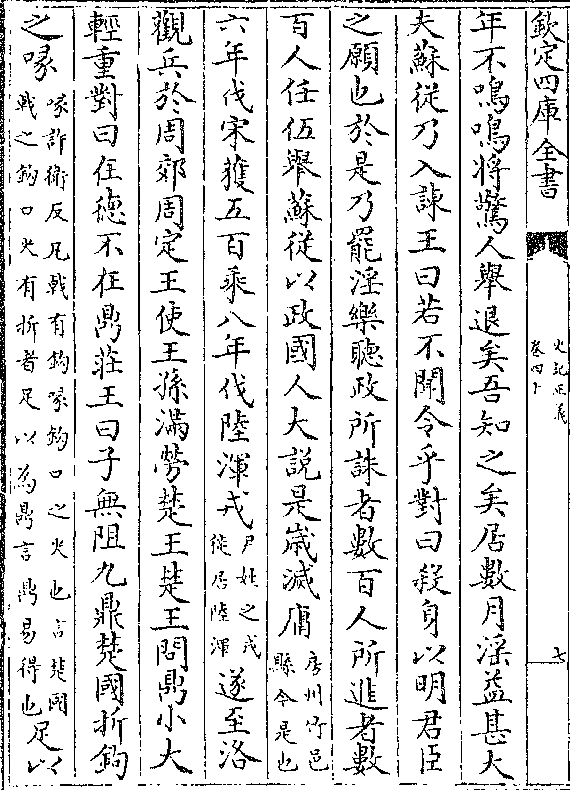 欽定四庫全書
史記正義
卷四十
七
年不鳴鳴將驚人舉退矣吾知之矣居數月淫益甚大
夫蘇從乃入諫王曰若不聞令乎對曰殺身以明君臣
之願也於是乃罷淫樂聽政所誅者數百人所進者數
百人任伍舉蘇從以政國人大說是嵗滅庸房州竹邑縣今是也
六年伐宋獲五百乘八年伐陸渾戎戶姓之戎徙居陸渾遂至洛
觀兵於周郊周定王使王孫滿勞楚王楚王問鼎小大
輕重對曰在徳不在鼎莊王曰子無阻九鼎楚國折鉤
之喙喙許衛反凡㦸有鉤喙鉤口之尖也言楚國㦸之鉤口尖有折者足以為鼎言鼎易得也足以